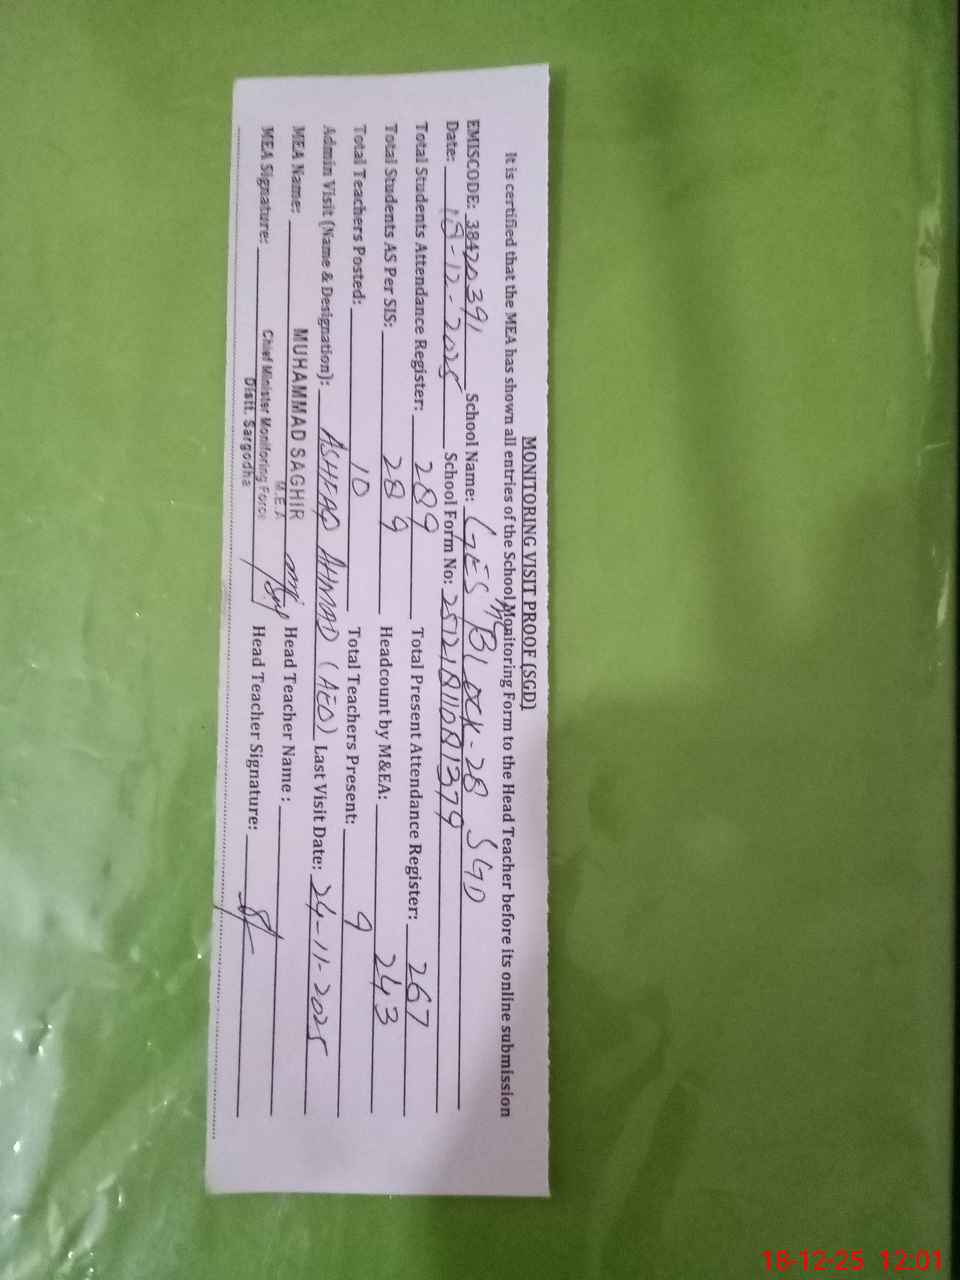 MONITORING VISIT PROOF (SGD)
It is certified that the MEA has shown all entries of the School Monitoring Form to the Head Teacher before its online submission
EMISCODE: 38420391 School Name: GES M BLOCK-28 SGD
Date: 18-12-2025 School Form No: 25121811081379
Total Students Attendance Register: 289 Total Present Attendance Register: 267
Total Students AS Per SIS: 289 Headcount by M&EA: 243
Total Teachers Posted: 10 Total Teachers Present: 9
Admin Visit (Name & Designation): ASHFAQ AHMAD (AEO) Last Visit Date: 24-11-2025
MEA Name: MUHAMMAD SAGHIR Head Teacher Name :
M.E.A
MEA Signature: Chief Minister Monitoring Force Head Teacher Signature:
Distt. Sargodha
18-12-25 12:01